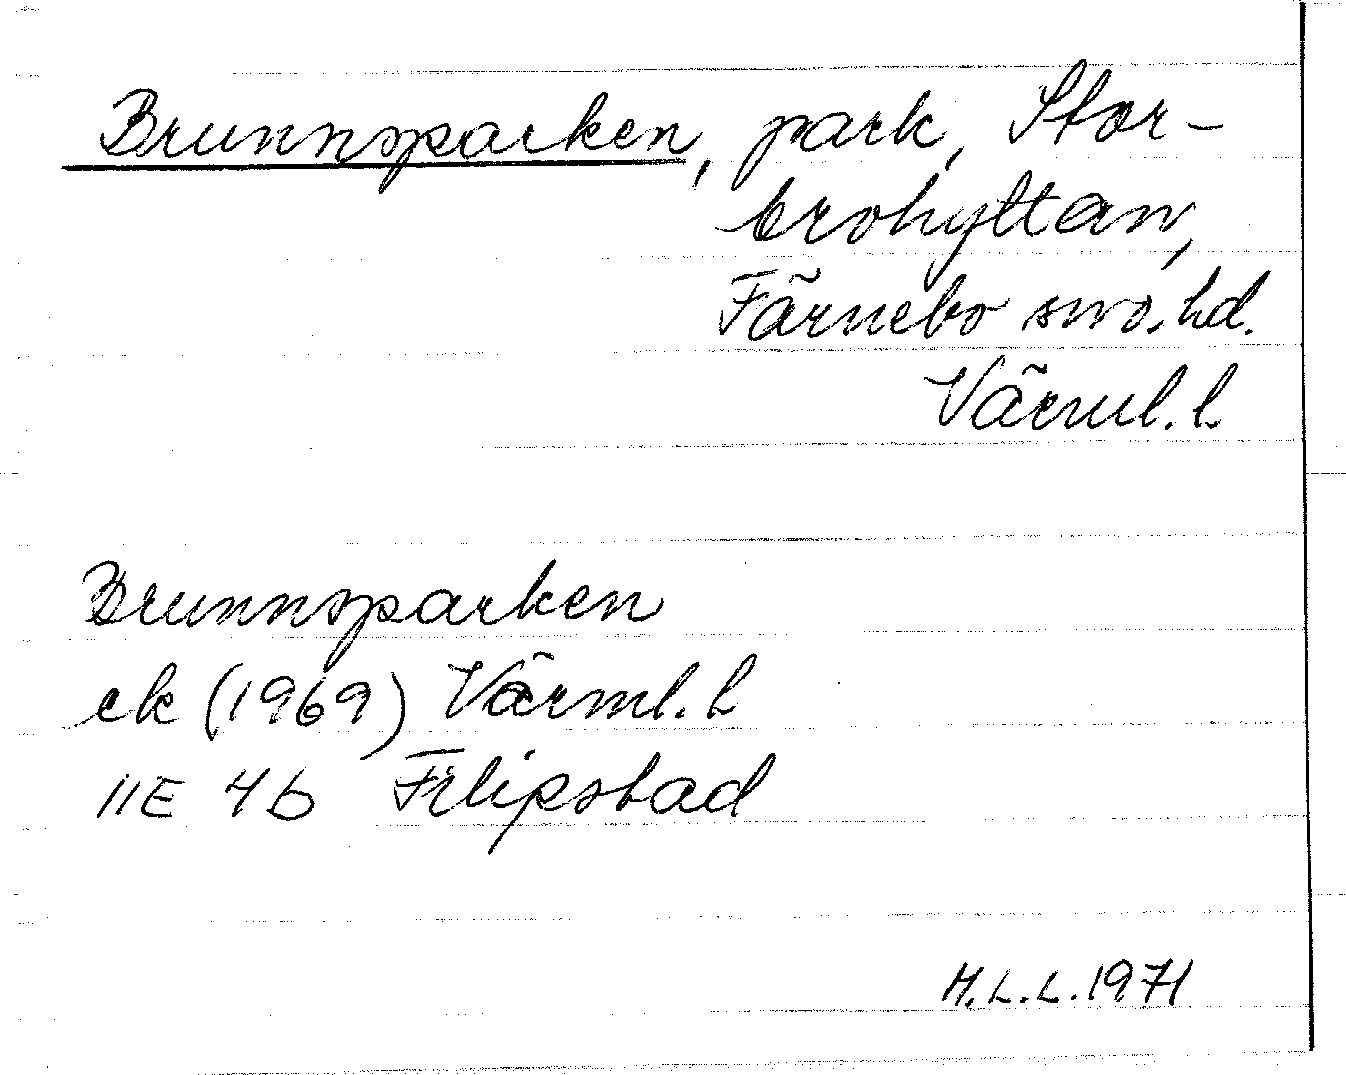 Brunnsparken, park, Stor-
brohyttan,
Färnebo sno. hd.
Värml. l
Brunnsparken
ek (1969) Värml. l
11E 4b Filipstad
M.L.L. 1971